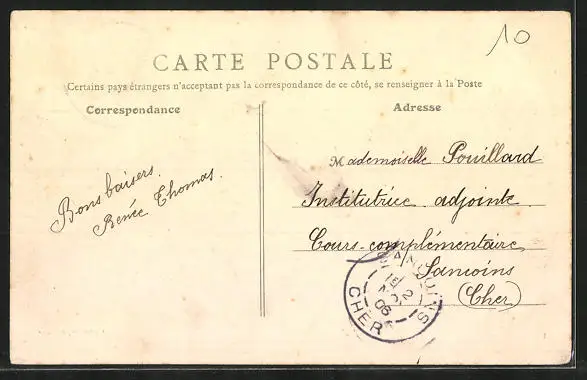 10
CARTE POSTALE
Certains pays étrangers n'acceptant pas la correspondance de ce côté, se renseigner à la Poste
Correspondance
Adresse
Bons baisers.
Renée Thomas.
Mademoiselle Pouillard
Institutrice adjointe
Cours-complémentaire
Sancoins
(Cher)
SANCOINS
CHER